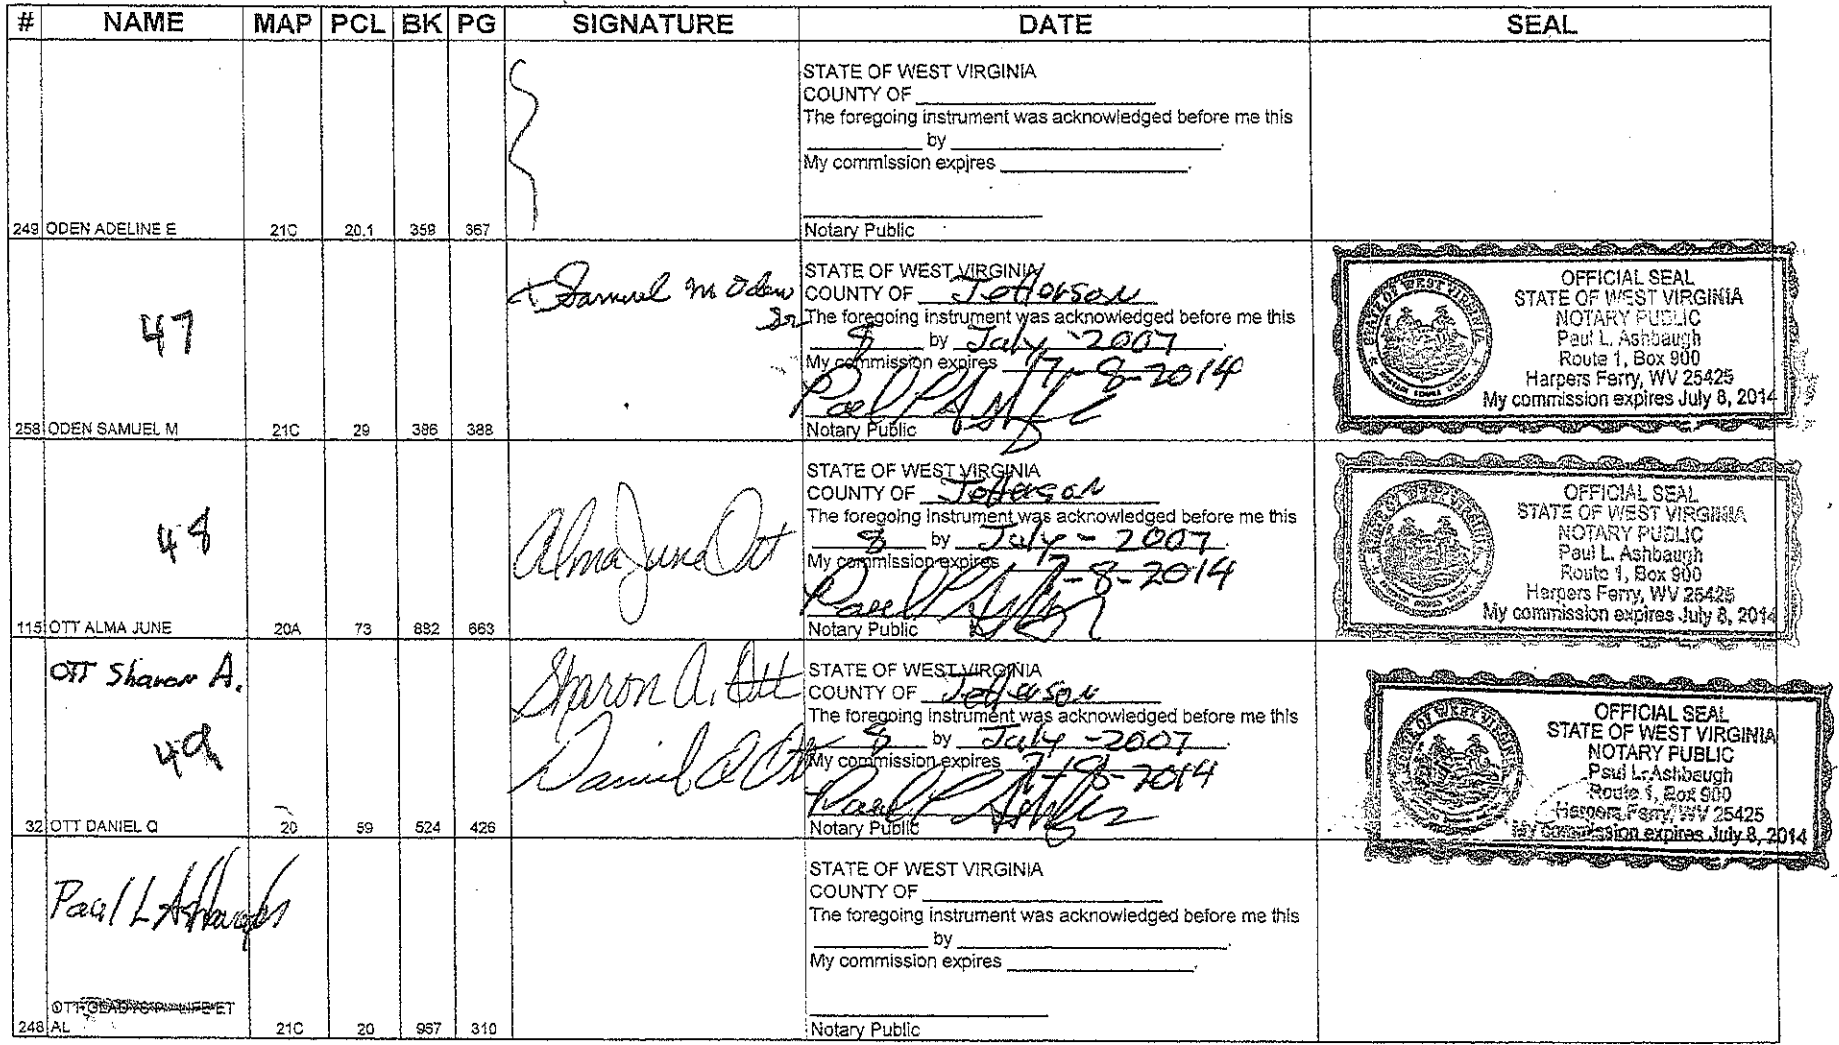 # NAME MAP PCL BK PG SIGNATURE DATE SEAL
STATE OF WEST VIRGINIA
COUNTY OF
The foregoing instrument was acknowledged before me this
by
My commission expires
Notary Public
249 ODEN ADELINE E 21C 20.1 359 367
47
Samuel M Oden
Sr
STATE OF WEST VIRGINIA
COUNTY OF Jefferson
The foregoing instrument was acknowledged before me this
8 by July - 2007
My commission expires 7-8-2014
Notary Public
OFFICIAL SEAL
STATE OF WEST VIRGINIA
NOTARY PUBLIC
Paul L. Ashbaugh
Route 1, Box 900
Harpers Ferry, WV 25425
My commission expires July 8, 2014
258 ODEN SAMUEL M 21C 29 386 388
48
Alma June Ott
STATE OF WEST VIRGINIA
COUNTY OF Jefferson
The foregoing instrument was acknowledged before me this
8 by July - 2007
My commission expires 7-8-2014
Notary Public
OFFICIAL SEAL
STATE OF WEST VIRGINIA
NOTARY PUBLIC
Paul L. Ashbaugh
Route 1, Box 900
Harpers Ferry, WV 25425
My commission expires July 8, 2014
115 OTT ALMA JUNE 20A 73 882 663
OTT Sharon A.
49
Sharon A. Ott
Daniel Q Ott
STATE OF WEST VIRGINIA
COUNTY OF Jefferson
The foregoing instrument was acknowledged before me this
8 by July - 2007
My commission expires 7-8-2014
Notary Public
OFFICIAL SEAL
STATE OF WEST VIRGINIA
NOTARY PUBLIC
Paul L. Ashbaugh
Route 1, Box 900
Harpers Ferry, WV 25425
My commission expires July 8, 2014
32 OTT DANIEL Q 20 59 524 426
Paul L Ashbaugh
STATE OF WEST VIRGINIA
COUNTY OF
The foregoing instrument was acknowledged before me this
by
My commission expires
Notary Public
OTT GLADYS LIFE ET
248 AL 21C 20 957 310